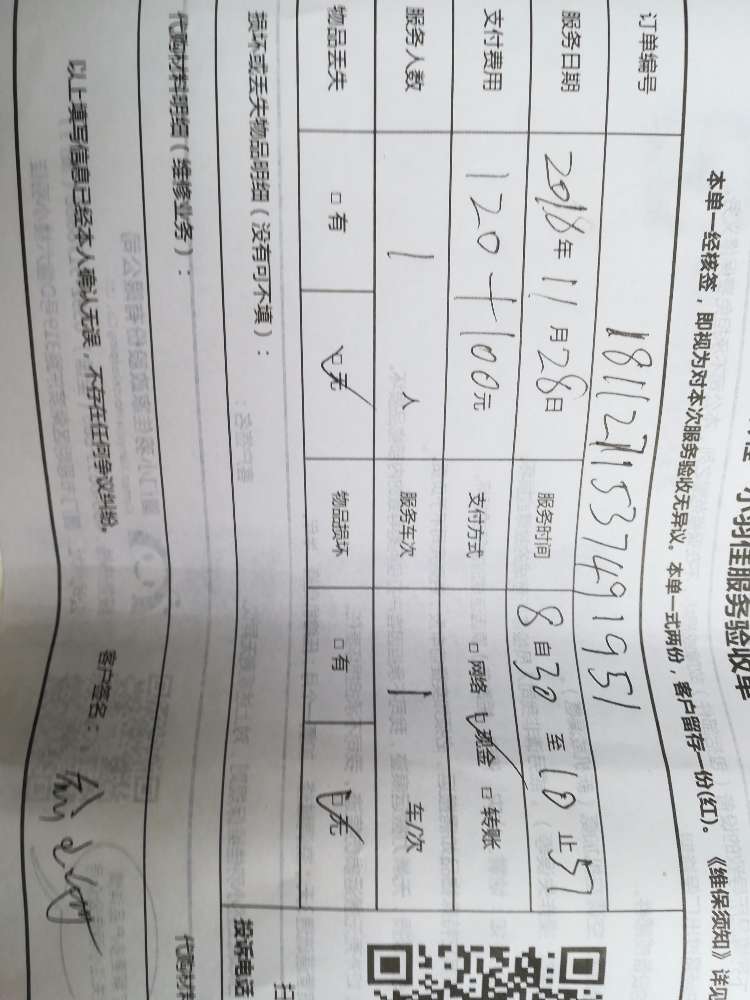 小羽佳服务验收单
本单一经核签，即视为对本次服务验收无异议。本单一式两份，客户留存一份(红)。《维保须知》详见
订单编号 1811271537491951
服务日期 2018年11月28日 服务时间 8自30至10止51
支付费用 120+100元 支付方式 □网络 ☑现金 □转账
服务人数 1 人 服务车次 1 车/次
物品丢失 □有 ☑无 物品损坏 □有 ☑无
损坏或丢失物品明细（没有可不填）：
投诉电话
代购材料明细（维修业务）：
代购材料
以上填写信息已经本人确认无误，不存在任何争议纠纷。 客户签名：